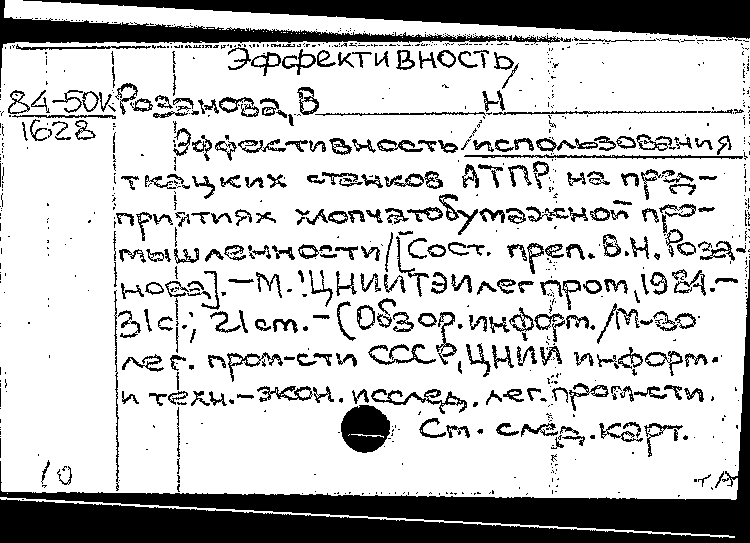 Эффективность
84-50К Розанова, В Н
1628
Эффективность / использования
ткацких станков АТПР на пред-
приятиях хлопчатобумажной про-
мышленности / [Сост. преп. В.Н. Роза-
нова]. - М.: ЦНИИТЭИлегпром, 1984. -
31с.; 21 см. - (Обзор. информ. / М-во
лег. пром-сти СССР, ЦНИИ информ.
и техн.-экон. исслед. лег. пром-сти.
См. след. карт.
10
т.А